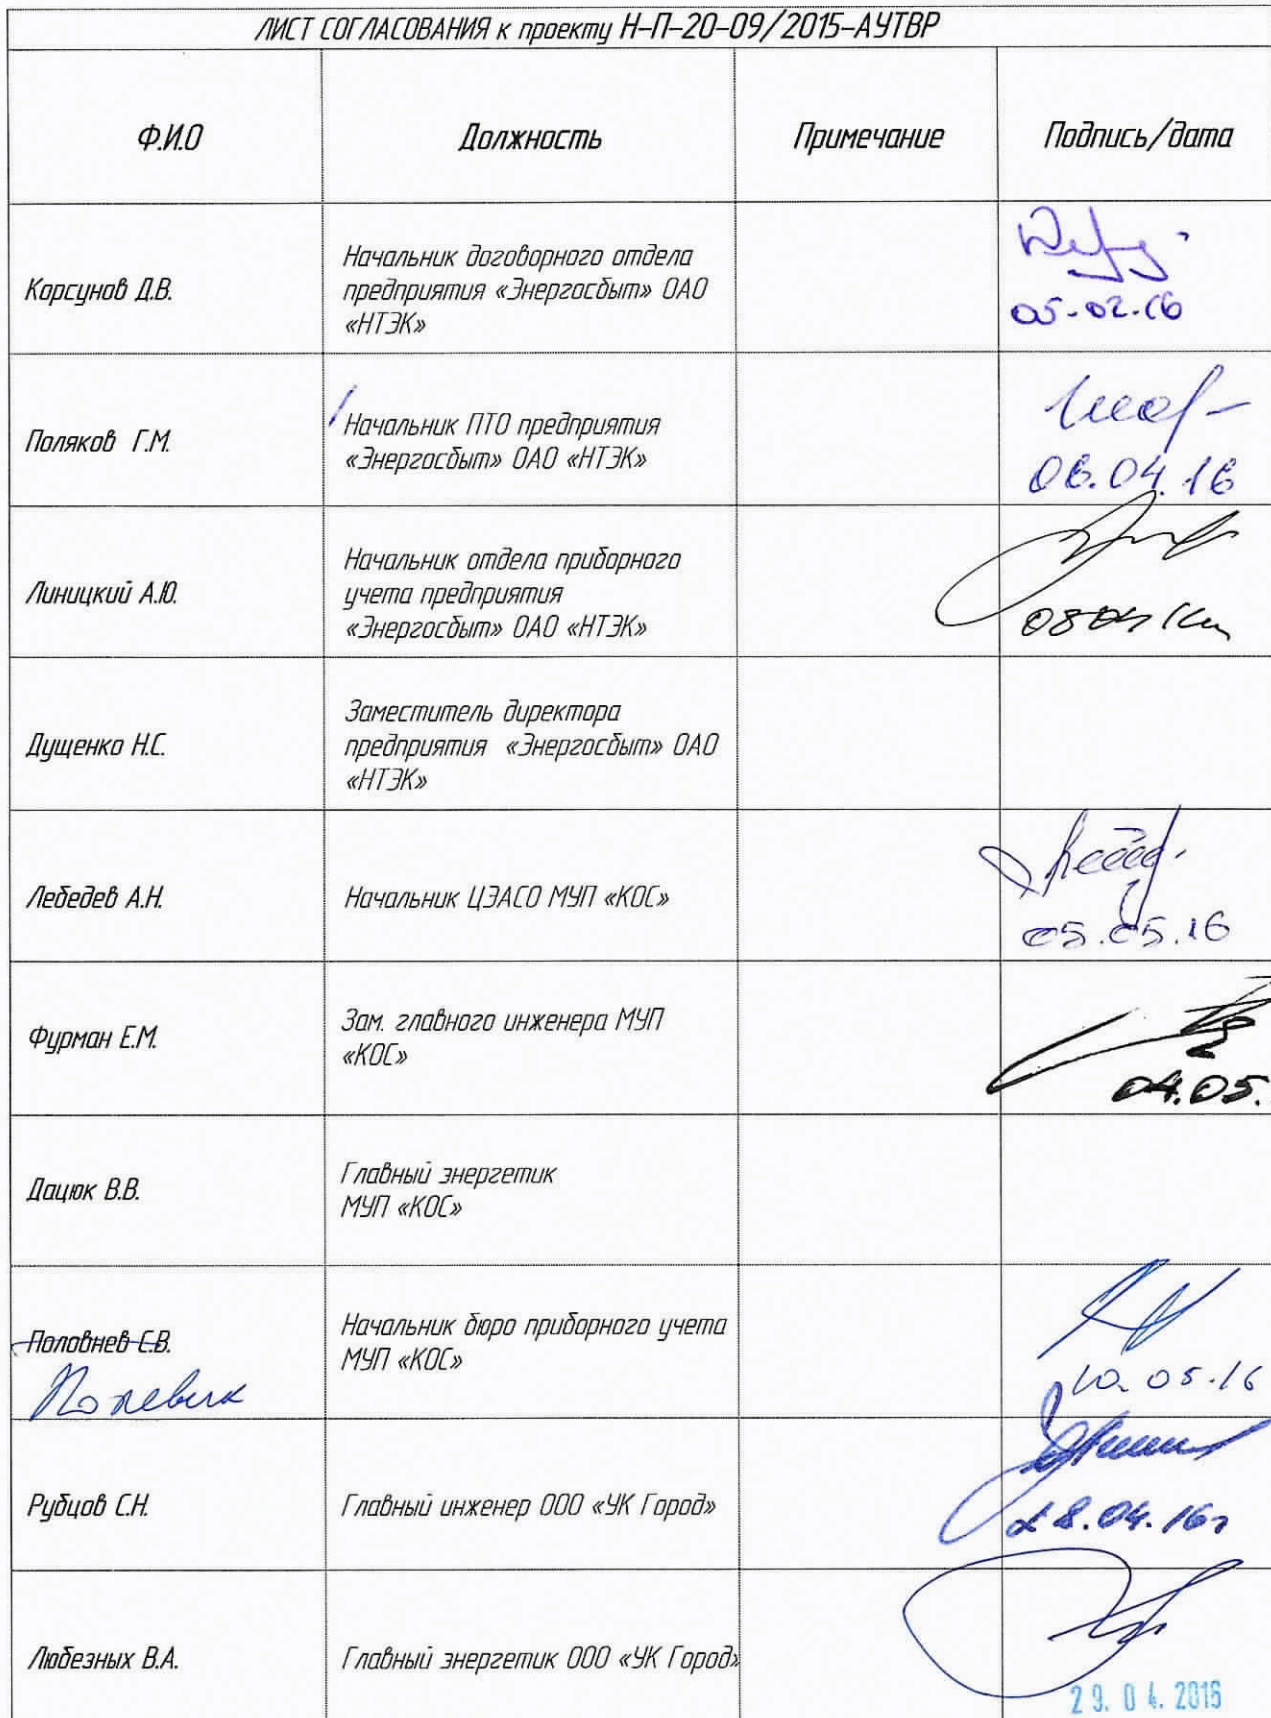 ЛИСТ СОГЛАСОВАНИЯ к проекту Н-П-20-09/2015-АУТВР
Ф.И.О Должность Примечание Подпись/дата
Корсунов Д.В.
Начальник договорного отдела
предприятия «Энергосбыт» ОАО
«НТЭК»
05-02-16
Поляков Г.М.
Начальник ПТО предприятия
«Энергосбыт» ОАО «НТЭК»
06.04.16
Линицкий А.Ю.
Начальник отдела приборного
учета предприятия
«Энергосбыт» ОАО «НТЭК»
Дущенко Н.С.
Заместитель директора
предприятия «Энергосбыт» ОАО
«НТЭК»
Лебедев А.Н.
Начальник ЦЭАСО МУП «КОС»
05.05.16
Фурман Е.М.
Зам. главного инженера МУП
«КОС»
04.05.
Дацюк В.В.
Главный энергетик
МУП «КОС»
Половнев С.В.
Начальник бюро приборного учета
МУП «КОС»
10.05.16
Рубцов С.Н.
Главный инженер ООО «УК Город»
28.04.16г
Любезных В.А.
Главный энергетик ООО «УК Город»
29.04.2016